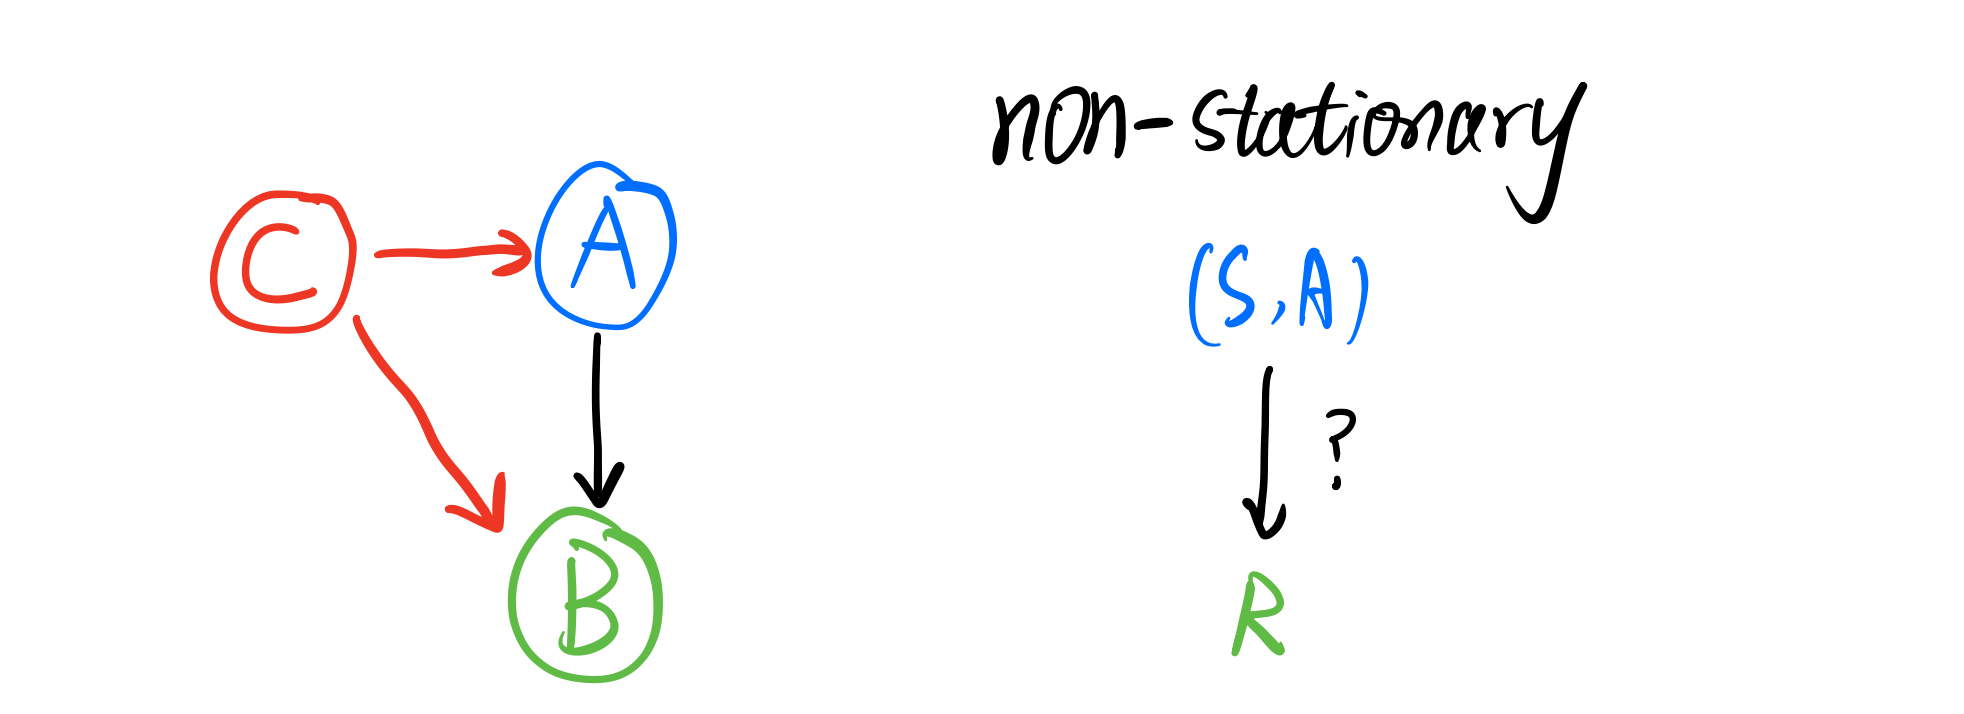 C
A
B
non-stationary
(S,A)
?
R